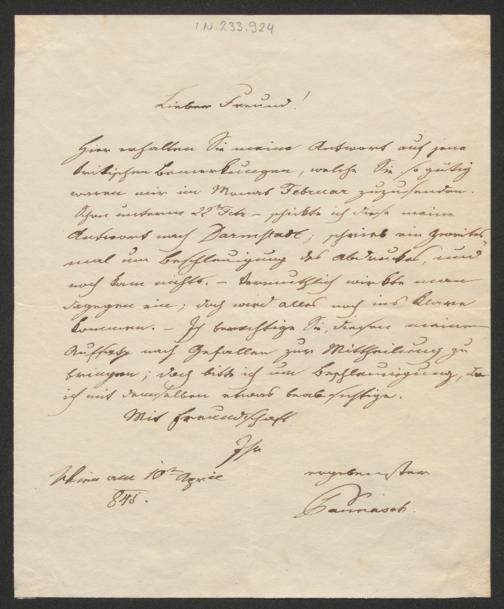 I.N. 233.924
Lieber Freund!
Hier erhalten Sie meine Antwort auf jene
kritischen Bemerkungen, welche Sie so gütig
waren mir im Monat Februar zuzusenden.
Schon unterm 22t Feb. – schickte ich diese meine
Antwort nach Darmstadt; schrieb ein zweites
mal um Beschleunigung des Abdruckes, und
noch kam nichts. – Vermuthlich wirkte man
dagegen ein; doch wird alles noch ins Klare
kommen. – Ich berechtige Sie, diesen meinen
Aufsatz nach Gefallen zur Mittheilung zu
bringen; doch bitte ich um Beschleunigung, da
ich mit demselben etwas beabsichtige.
Mit Freundschaft
Ihr
Wien am 10t April ergebenster
845.